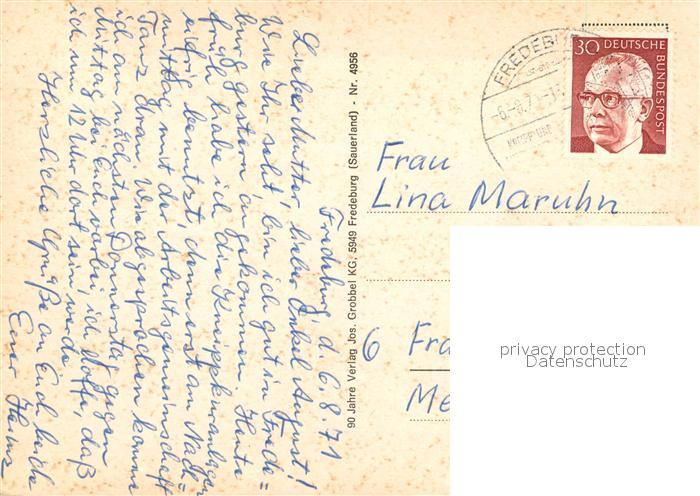 Fredeburg d. 6.8.71
Liebe Mutter, lieber Onkel August!
Wie Ihr seht bin ich gut in Frede=
burg gestern angekommen. Heute
früh habe ich die Kneippkuranlagen
eifrig benutzt, denn erst am Nach=
mittag mit der Arbeitsgemeinschaft
Tanz dran. Wie abgesprochen komme
ich am nächsten Donnerstag gegen
Mittag bei Euch vorbei. Ich hoffe, daß
ich um 12 Uhr dort sein werde.
Herzliche Grüße an Euch beide
Euer Heinz
90 Jahre Verlag Jos. Grobbel KG, 5949 Fredeburg (Sauerland) - Nr. 4956
FREDEBU
-6.-8.7
30 DEUTSCHE
BUNDESPOST
Frau
Lina Maruhn
6 Fra
Me
privacy protection
Datenschutz